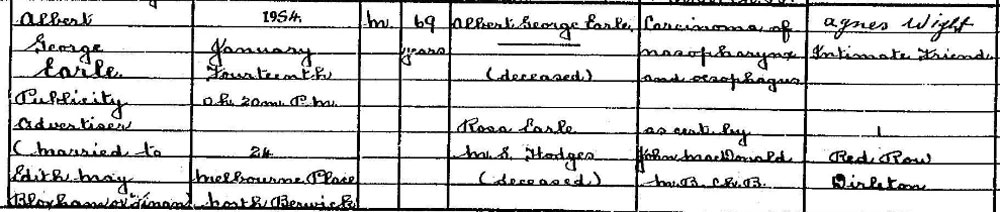 Albert 1954. m. 69 Albert George Earle Carcinoma of Agnes Wight
George January years nasopharynx Intimate Friend
Earle Fourteenth (deceased) and oesophagus
Publicity 0h. 20m. P.m.
Advertiser Rosa Earle as cert by 1
(married to 24 m.s. Hodges John MacDonald Red Row
Edith May Melbourne Place (deceased) M.B. Ch.B. Dirleton
Bloxham or North Berwick